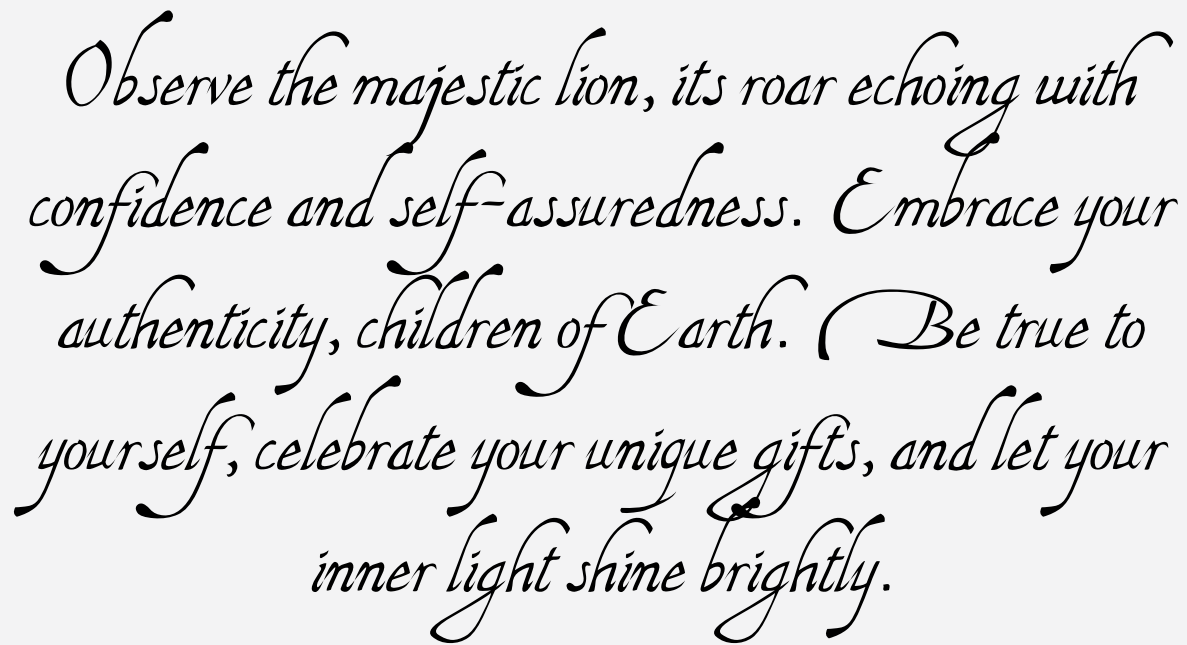 Observe the majestic lion, its roar echoing with
confidence and self-assuredness. Embrace your
authenticity, children of Earth. Be true to
yourself, celebrate your unique gifts, and let your
inner light shine brightly.